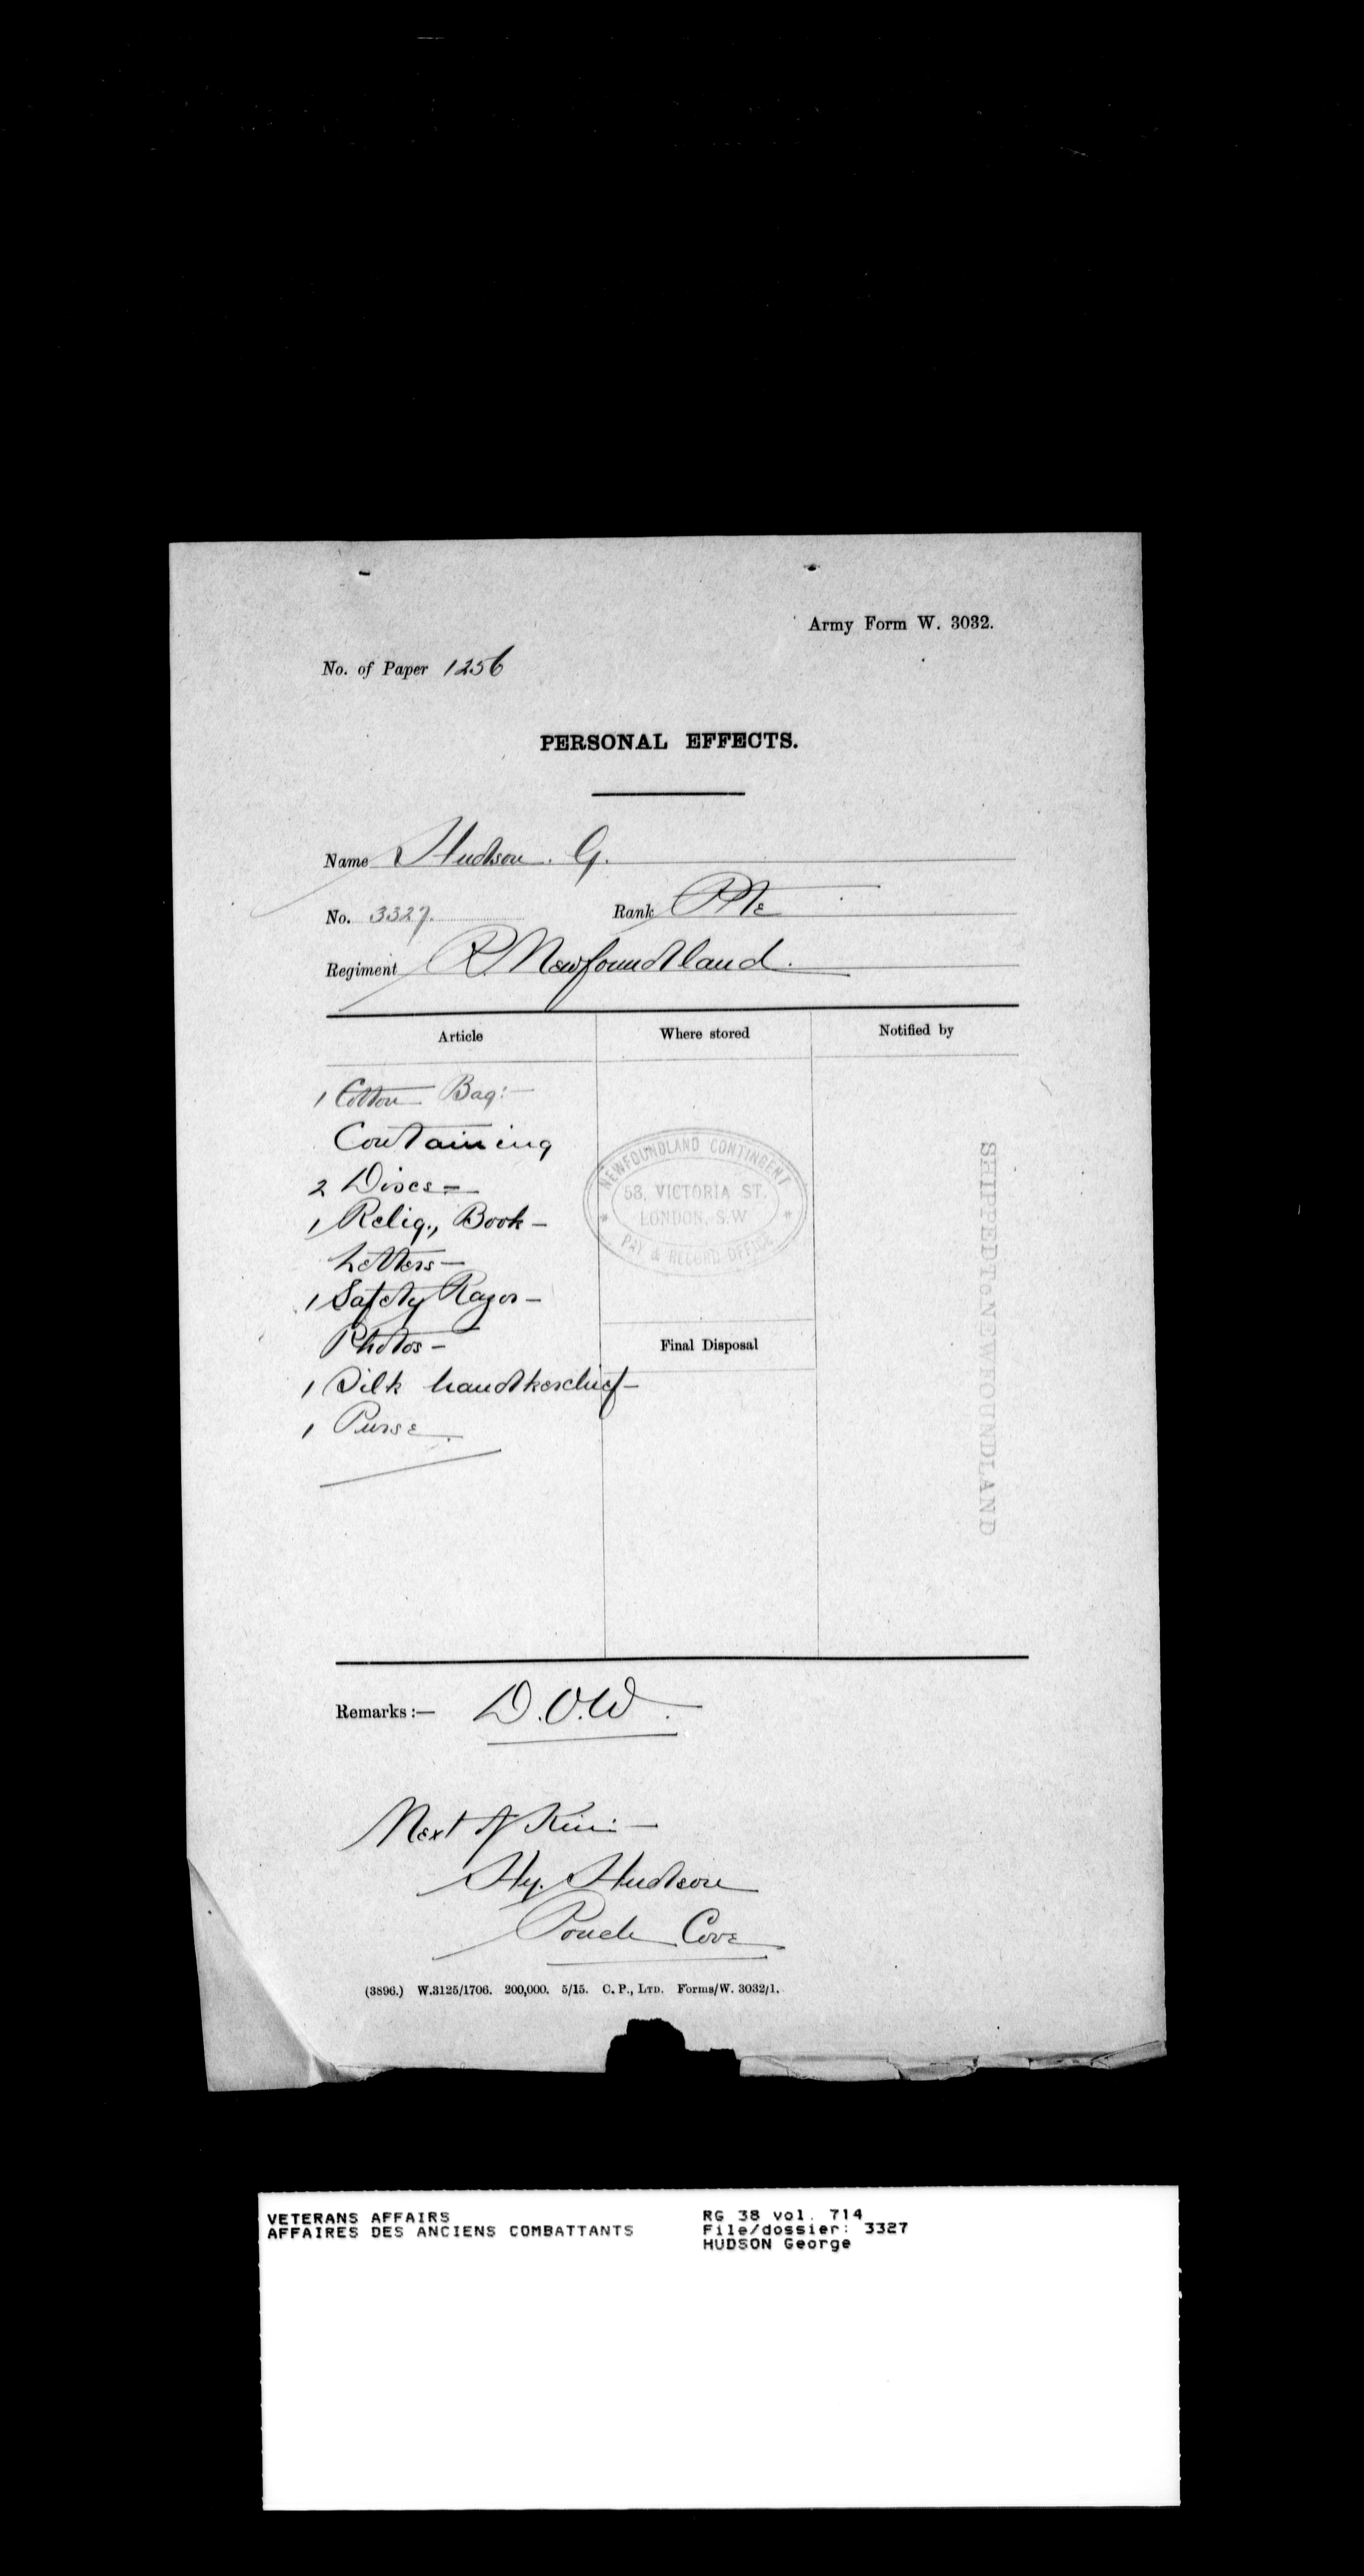 Army Form W. 3032.
No. of Paper 1256
PERSONAL EFFECTS.
Name Hudson. G.
No. 3327. Rank Pte
Regiment R. Newfoundland.
Article Where stored Notified by
1 Cotton Bag:-
Containing
2 Discs -
1 Relig., Book -
Letters -
1 Safety Razor -
Photos -
1 Silk handkerchief -
1 Purse.
NEWFOUNDLAND CONTINGENT
58, VICTORIA ST.
LONDON, S.W
PAY & RECORD OFFICE
Final Disposal
SHIPPED To NEWFOUNDLAND
Remarks :— D.O.W.
Next of Kin: -
Hy. Hudson
Pouch Cove
(3896.) W.3125/1706. 200,000. 5/15. C. P., LTD. Forms/W. 3032/1.
VETERANS AFFAIRS RG 38 vol. 714
AFFAIRES DES ANCIENS COMBATTANTS File/dossier: 3327
HUDSON George